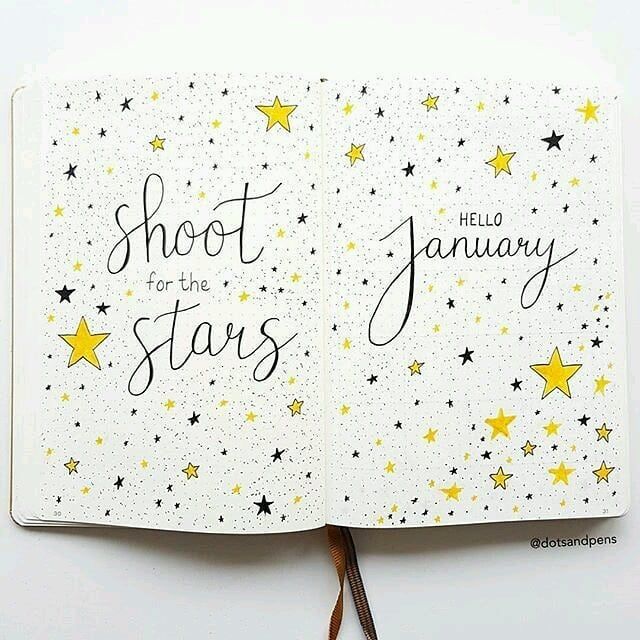 shoot
for the
stars
HELLO
January
30
31
@dotsandpens